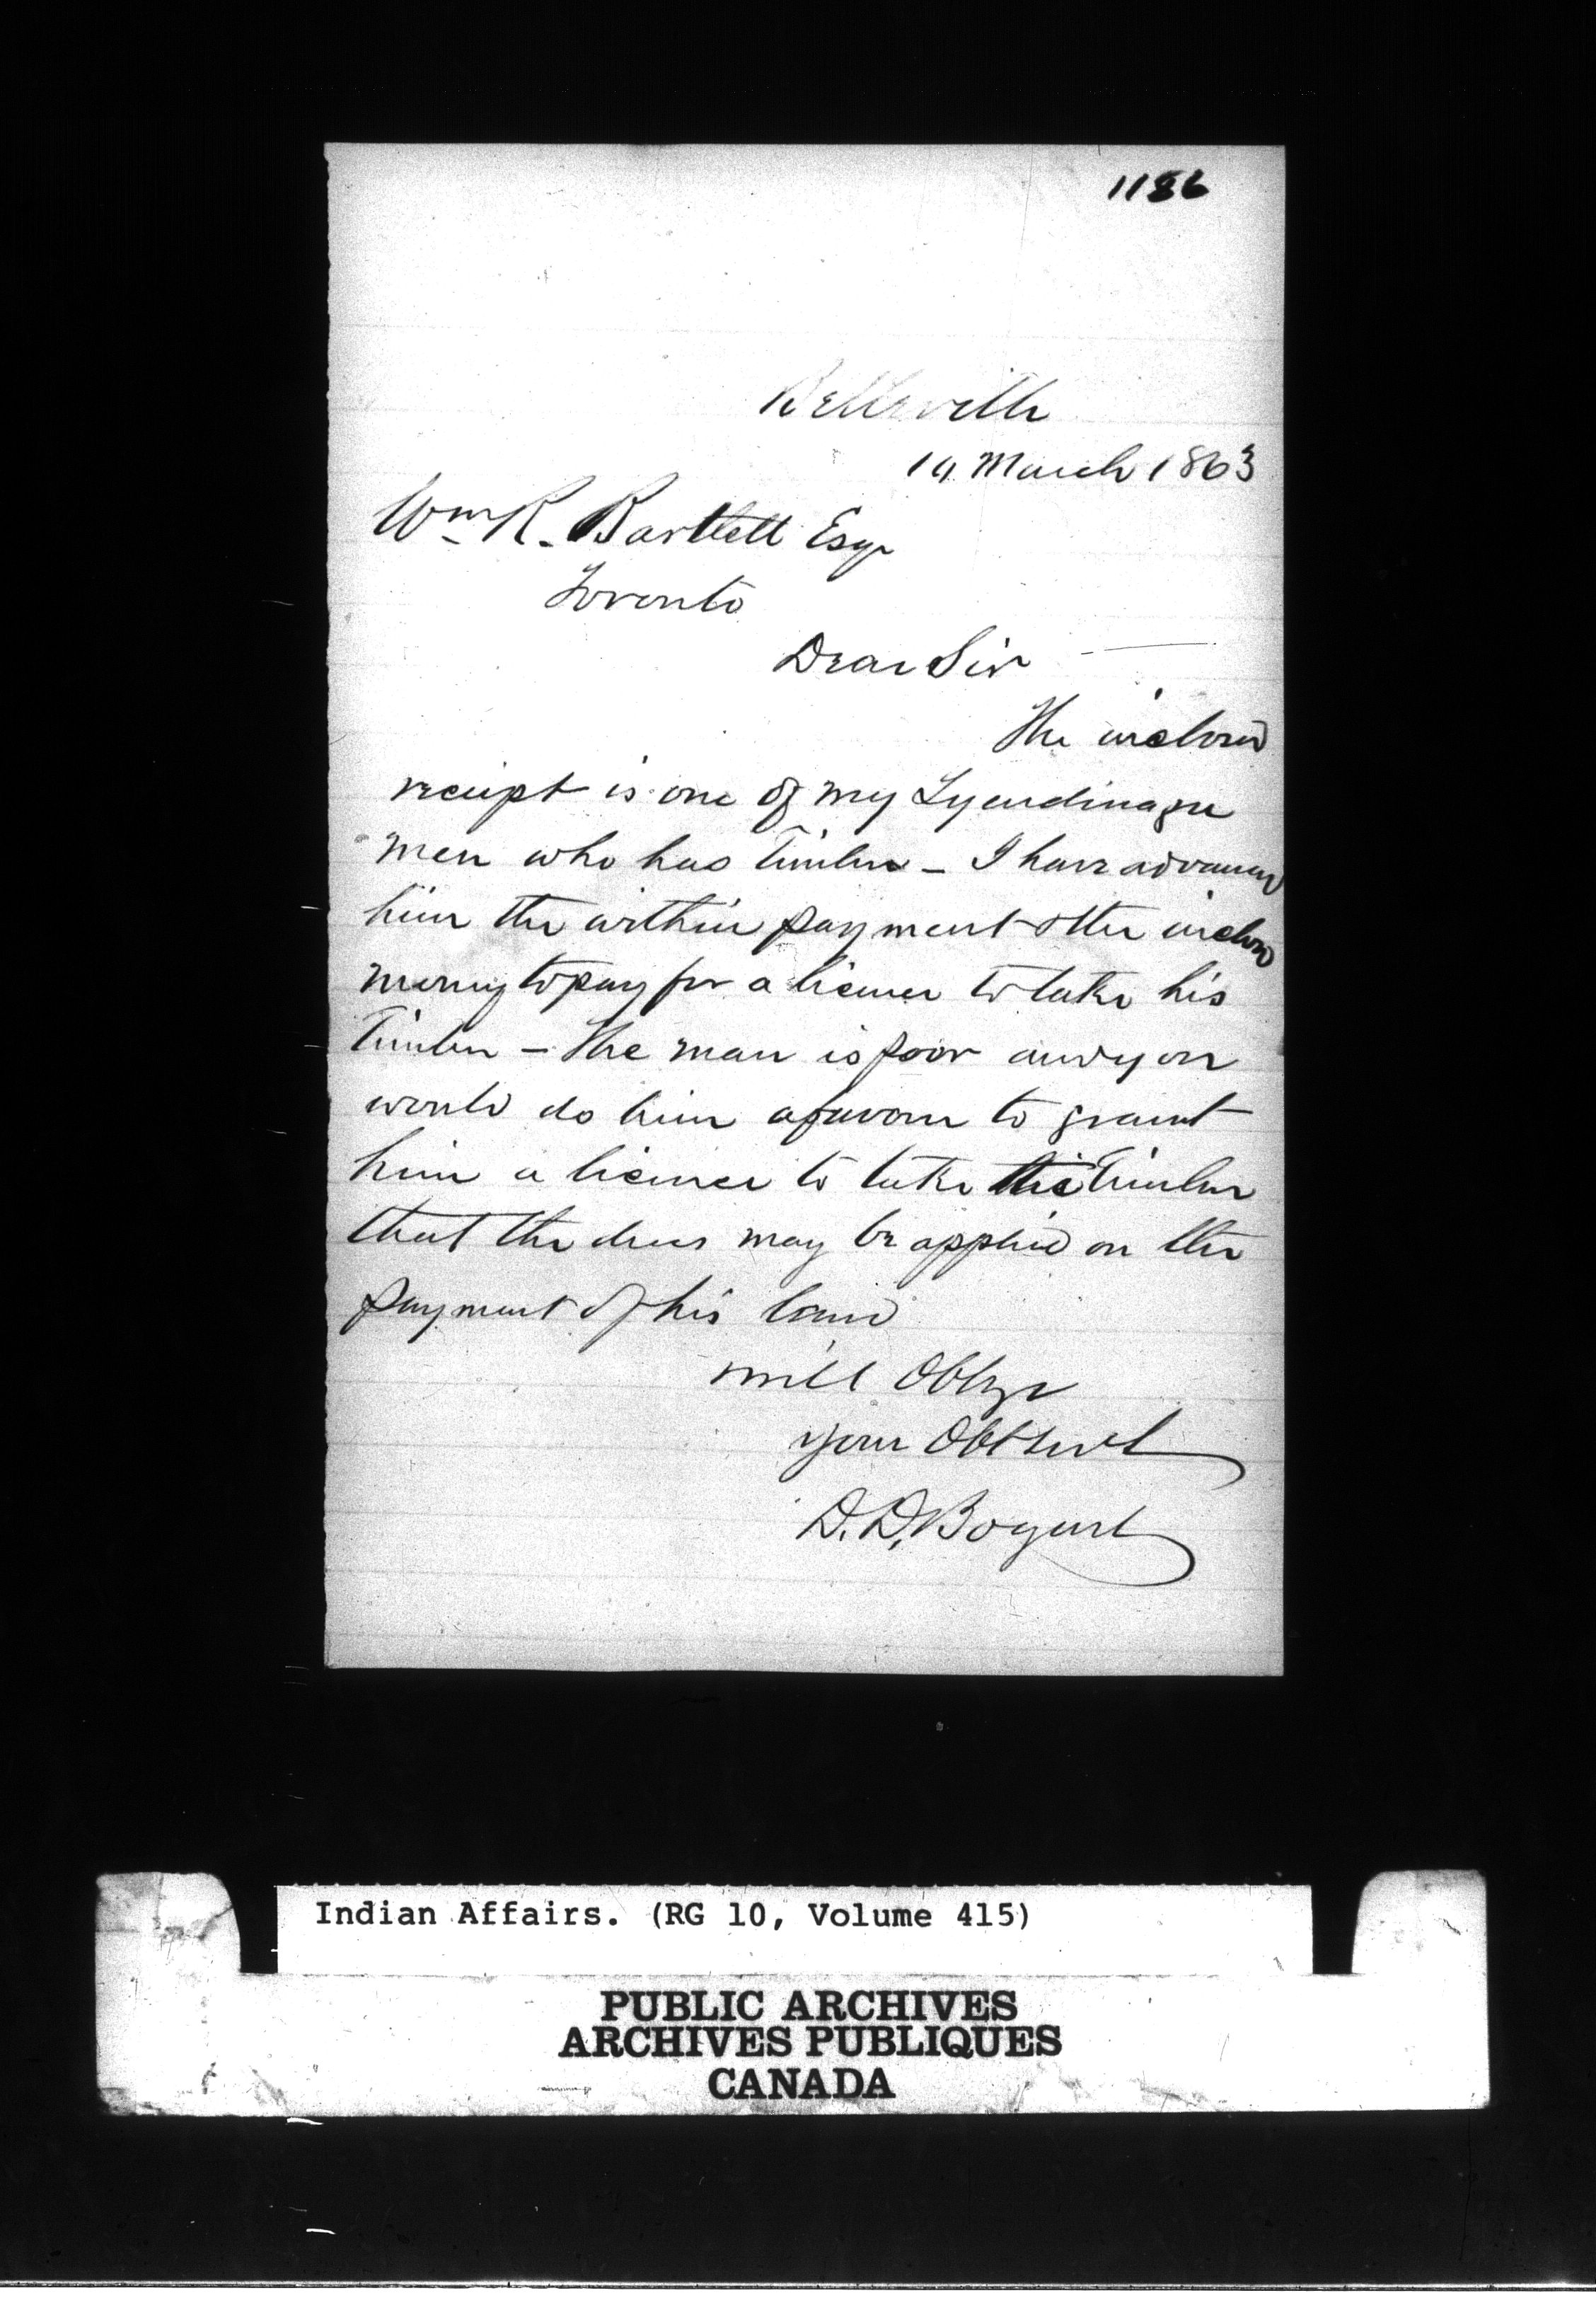 1186
Belleville
14 March 1863
Wm R. Bartlett Esqr
Toronto
Dear Sir
The inclosed
receipt is one of my Tyendinaga
men who has Timber - I have advanced
him the within payment & the inclosed
money to pay for a licence to take his
Timber - The man is poor and you
would do him a favour to grant
him a licence to take the Timber
that the dues may be applied on the
payment of his land
will Oblige
your Obt Servt
D. D. Bogart
Indian Affairs. (RG 10, Volume 415)
PUBLIC ARCHIVES
ARCHIVES PUBLIQUES
CANADA